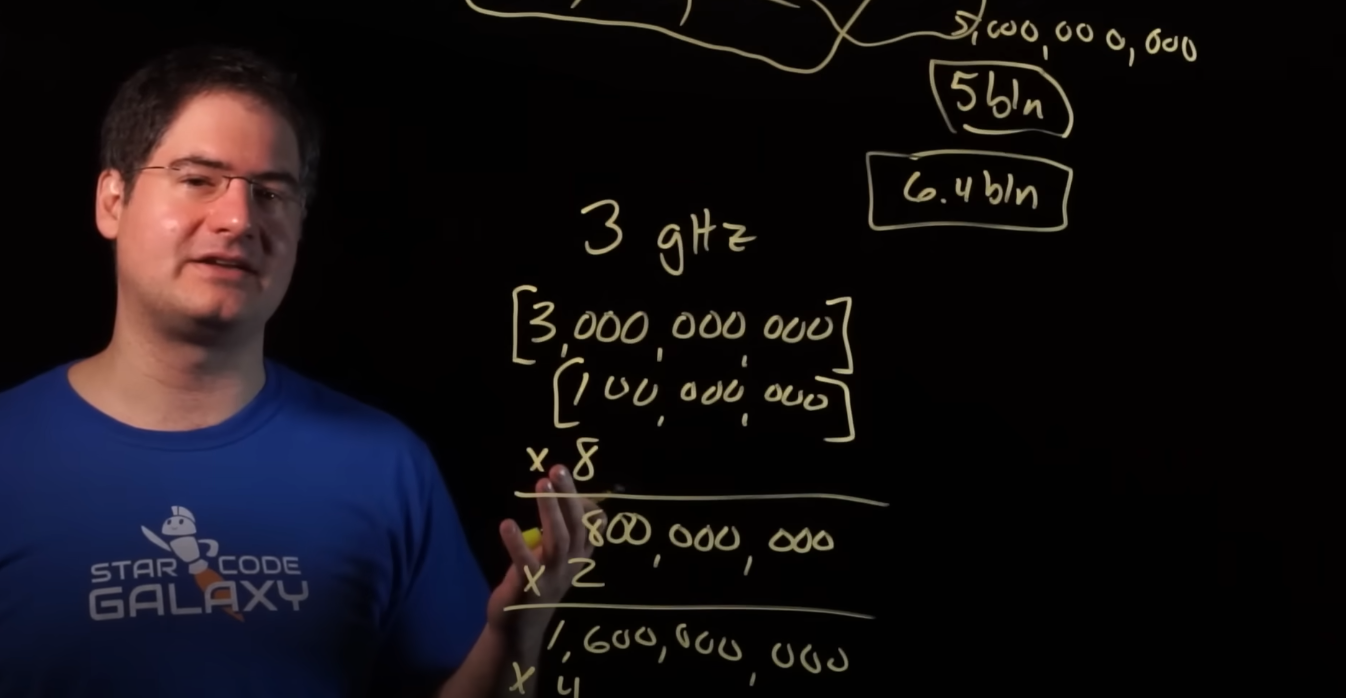 5,000,000,000
5bln
6.4bln
3 gHz
[3,000,000,000]
[100,000,000]
x 8
800,000,000
x 2
1,600,000,000
x 4
STAR CODE
GALAXY